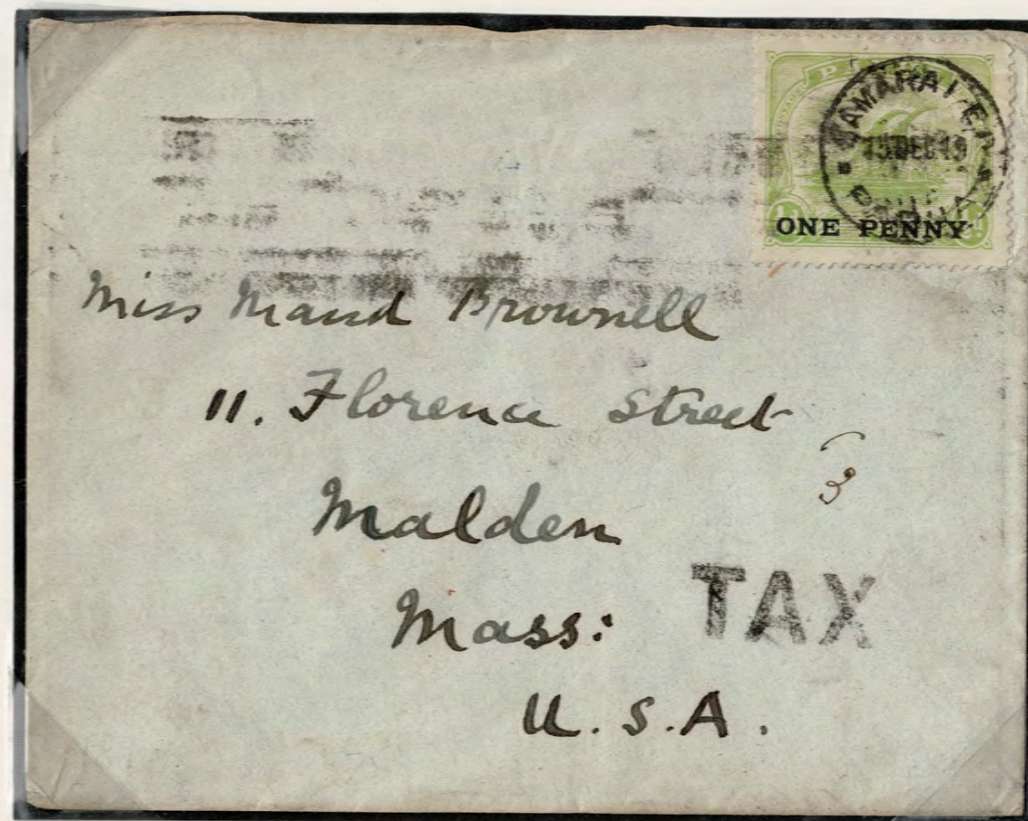 SAMARAI · E.P.
15 DEC 19
PAPUA
ONE PENNY
Miss Maud Brownell
11. Florence Street
3
Malden
Mass:
TAX
U. S. A.